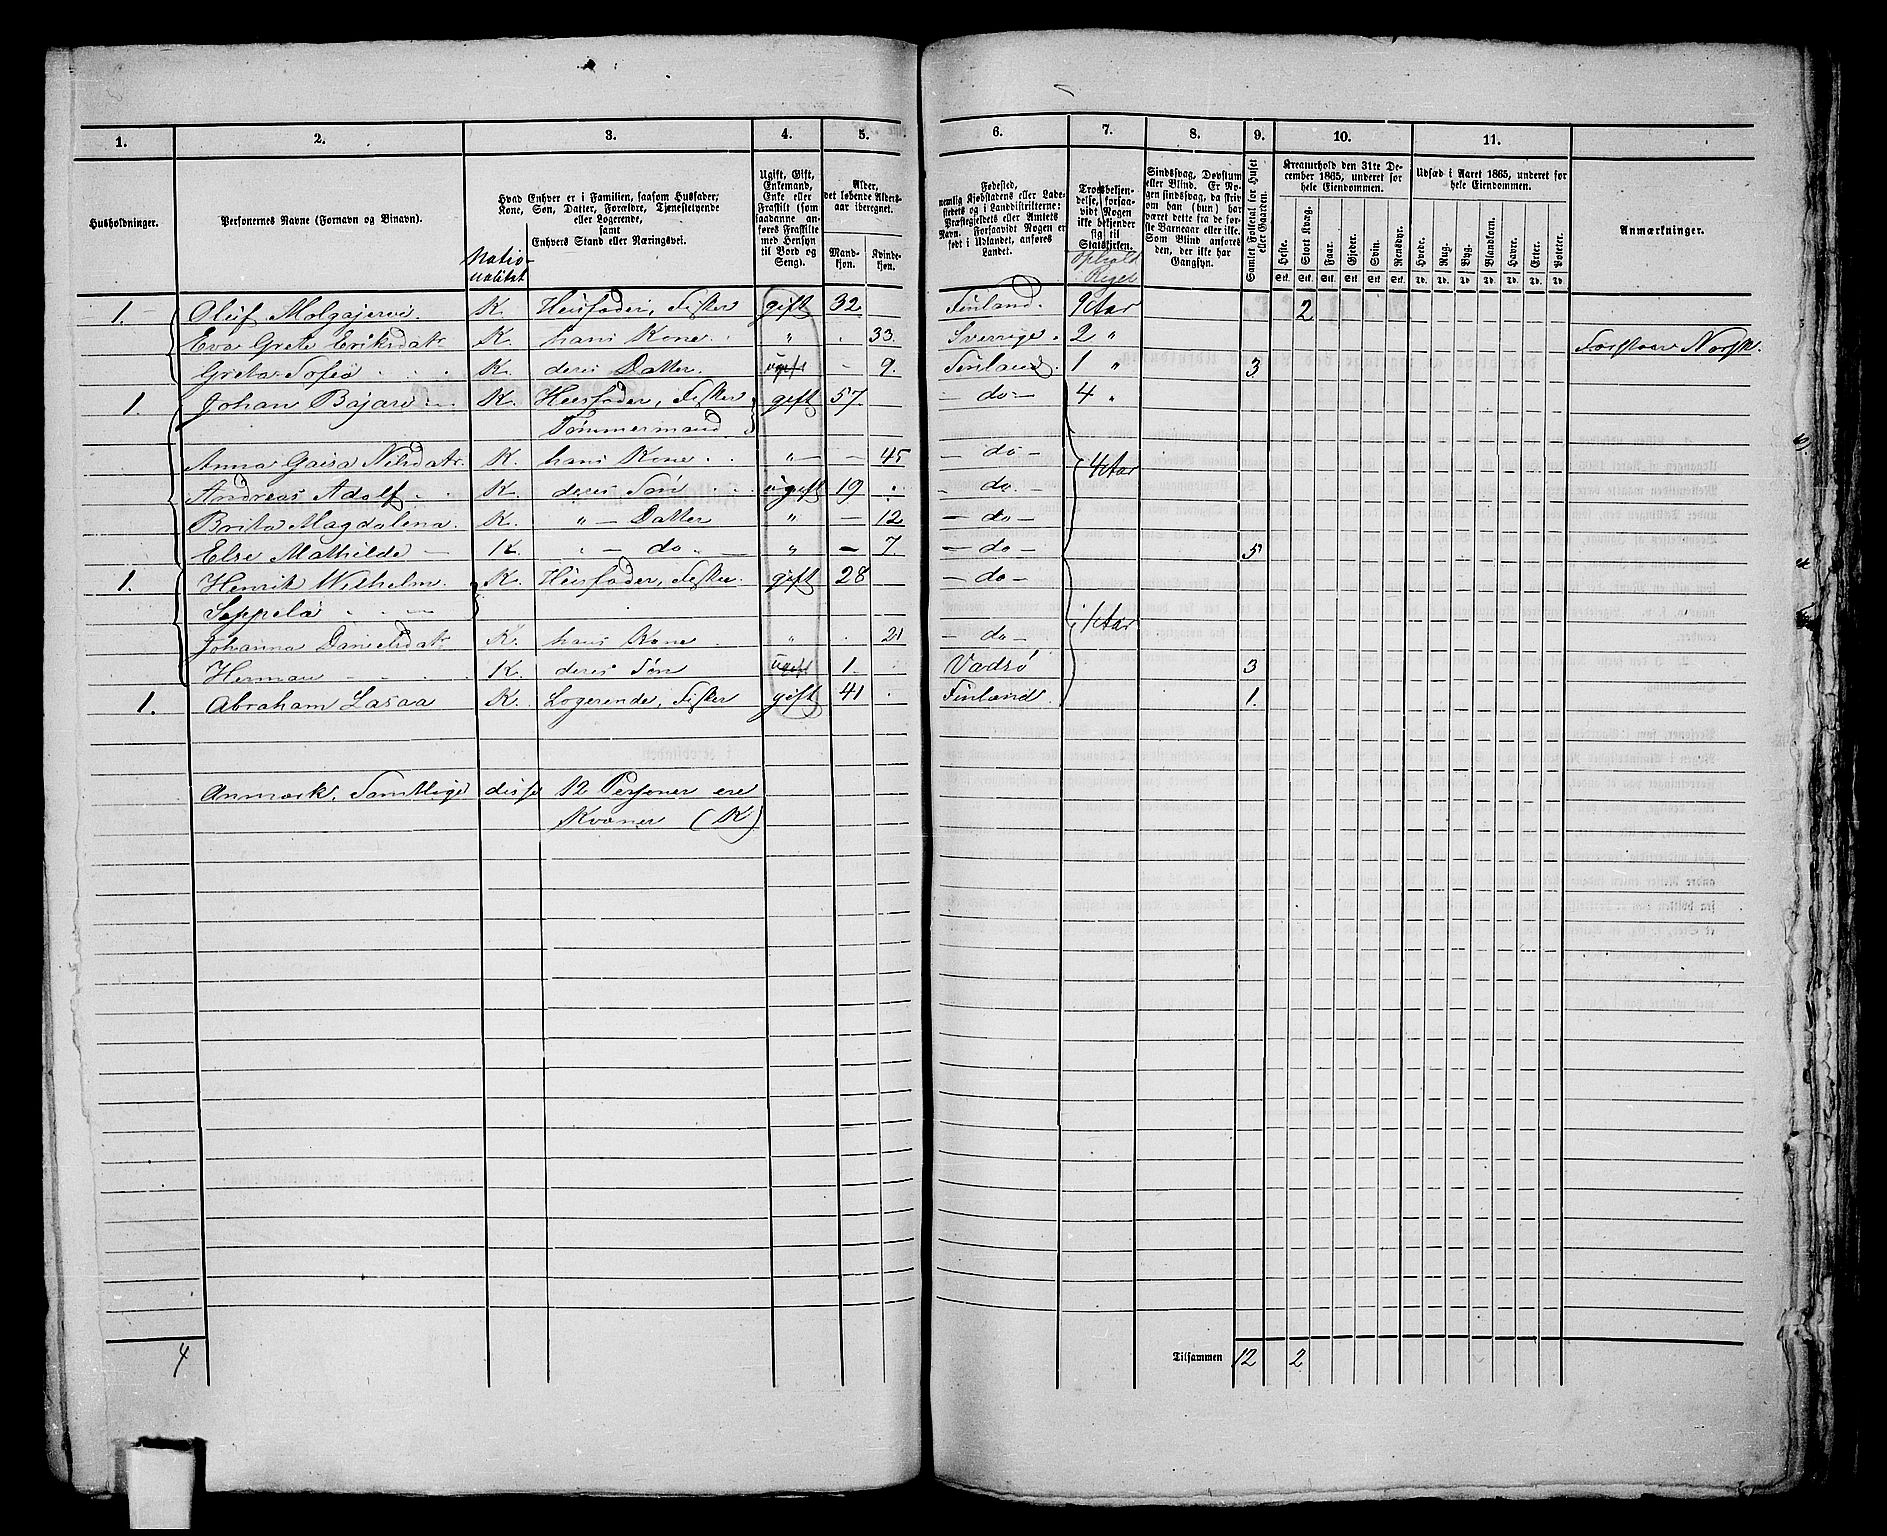 1. 2. 3. 4. 5. 6. 7. 8. 9. 10. 11.
Husholdninger.
Personernes Navne (Fornavn og Binavn).
Natio-
nalitet
Hvad Enhver er i Familien, saasom Husfader,
Kone, Søn, Datter, Forældre, Tjenestetyende
eller Logerende,
samt
Enhvers Stand eller Næringsvei.
Ugift, Gift,
Enkemand,
Enke eller
Fraskilt (som
saadanne an-
føres Fraskilte
med Hensyn
til Bord og
Seng).
Alder,
det løbende Alders-
aar iberegnet.
Mand-
kjøn.
Kvinde-
kjøn.
Fødested,
nemlig Kjøbstadens eller Lade-
stedets og i Landdistrikterne:
Præstegjeldets eller Amtets
Navn. Forsaavidt Nogen er
født i Udlandet, anføres
Landet.
Troesbekjen-
delse, forsaa-
vidt Nogen
ikke bekjender
sig til
Statskirken.
Ophold
i Riget
Sindssvag, Døvstum
eller Blind. Er No-
gen sindssvag, da skriv
om han (hun) har
været dette fra de før-
ste Barneaar eller ikke.
Som Blind anføres
den, der ikke har
Gangsyn.
Samlet Folketal for Huset
eller Gaarden.
Kreaturhold den 31te De-
cember 1865, underet for
hele Eiendommen.
Heste. Stort Kvæg. Faar. Gjeder. Svin. Rensdyr.
Stk. Stk. Stk. Stk. Stk. Stk.
Udsæd i Aaret 1865, underet for
hele Eiendommen.
Hvede. Rug. Byg. Blandkorn. Havre. Erter. Poteter.
Td. Td. Td. Td. Td. Td. Td.
Anmærkninger.
1. Oluf Molgajervi. K. Husfader, Fisker gift 32 Finland. 9 Aar 2
Eva Greta Eriksdatr K. hans Kone. " 33. Sverrige. 2 " Forstaar Norsk.
Greta Sofia K. deres Datter. ugift 9. Finland. 1 " 3
1. Johan Bajari K. Husfader, Fisker gift 57 do 4 "
Tømmermand
Anna Gaisa Nilsdatr K. hans Kone " 45 do 4 Aar
Andreas Adolf K. deres Søn ugift 19 do.
Brita Magdalena. K. " Datter " 12 do
Else Mathilde K. " do " 7 do 5
1. Henrik Wilhelm K. Husfader, Fisker. gift 28 do
Seppela
Johanna Danielsdatr K. hans Kone " 21 do 1 Aar
Herman K. deres Søn ugift 1. Vadsö 3
1. Abraham Lasaa K. Logerende, Fisker gift 41 Finland. 1.
Anmærk. Samtlige disse 12 Personer ere
Kvæner (K)
4 Tilsammen 12 2